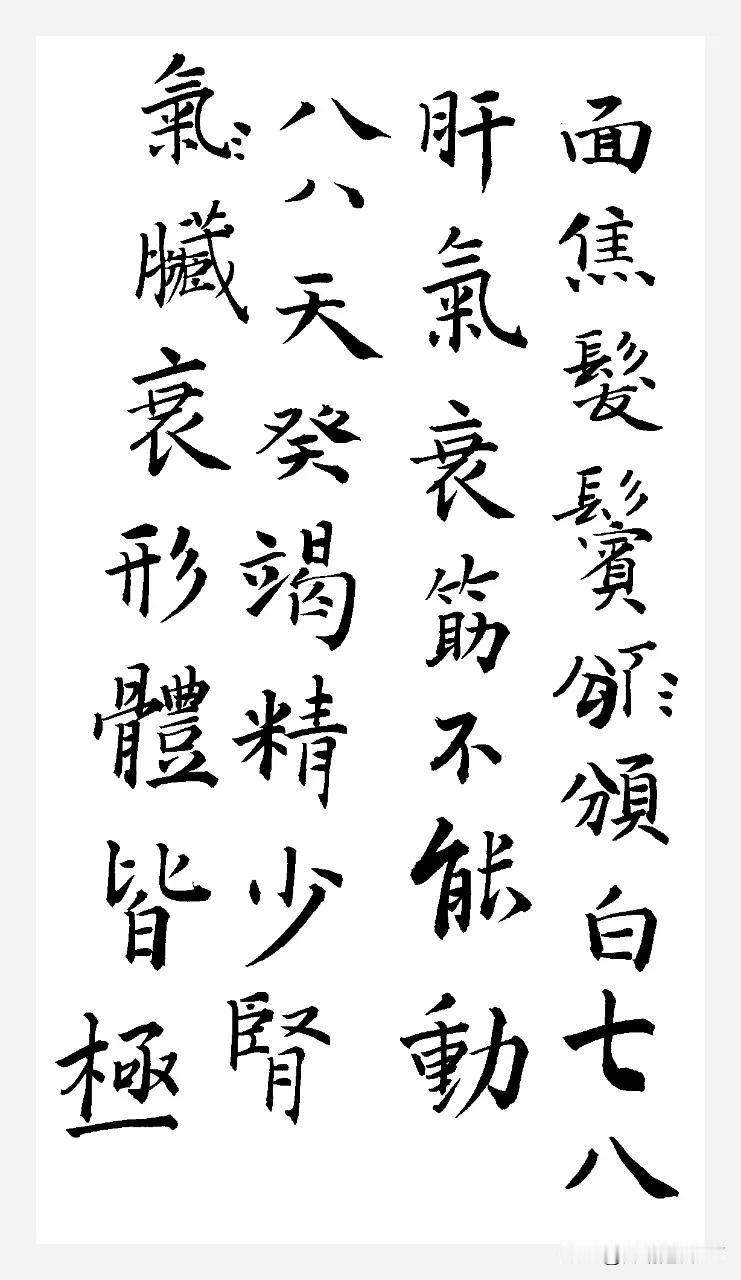 面焦髮鬢頒白七八
肝氣衰筋不能動
八八天癸竭精少腎
氣臟衰形體皆極